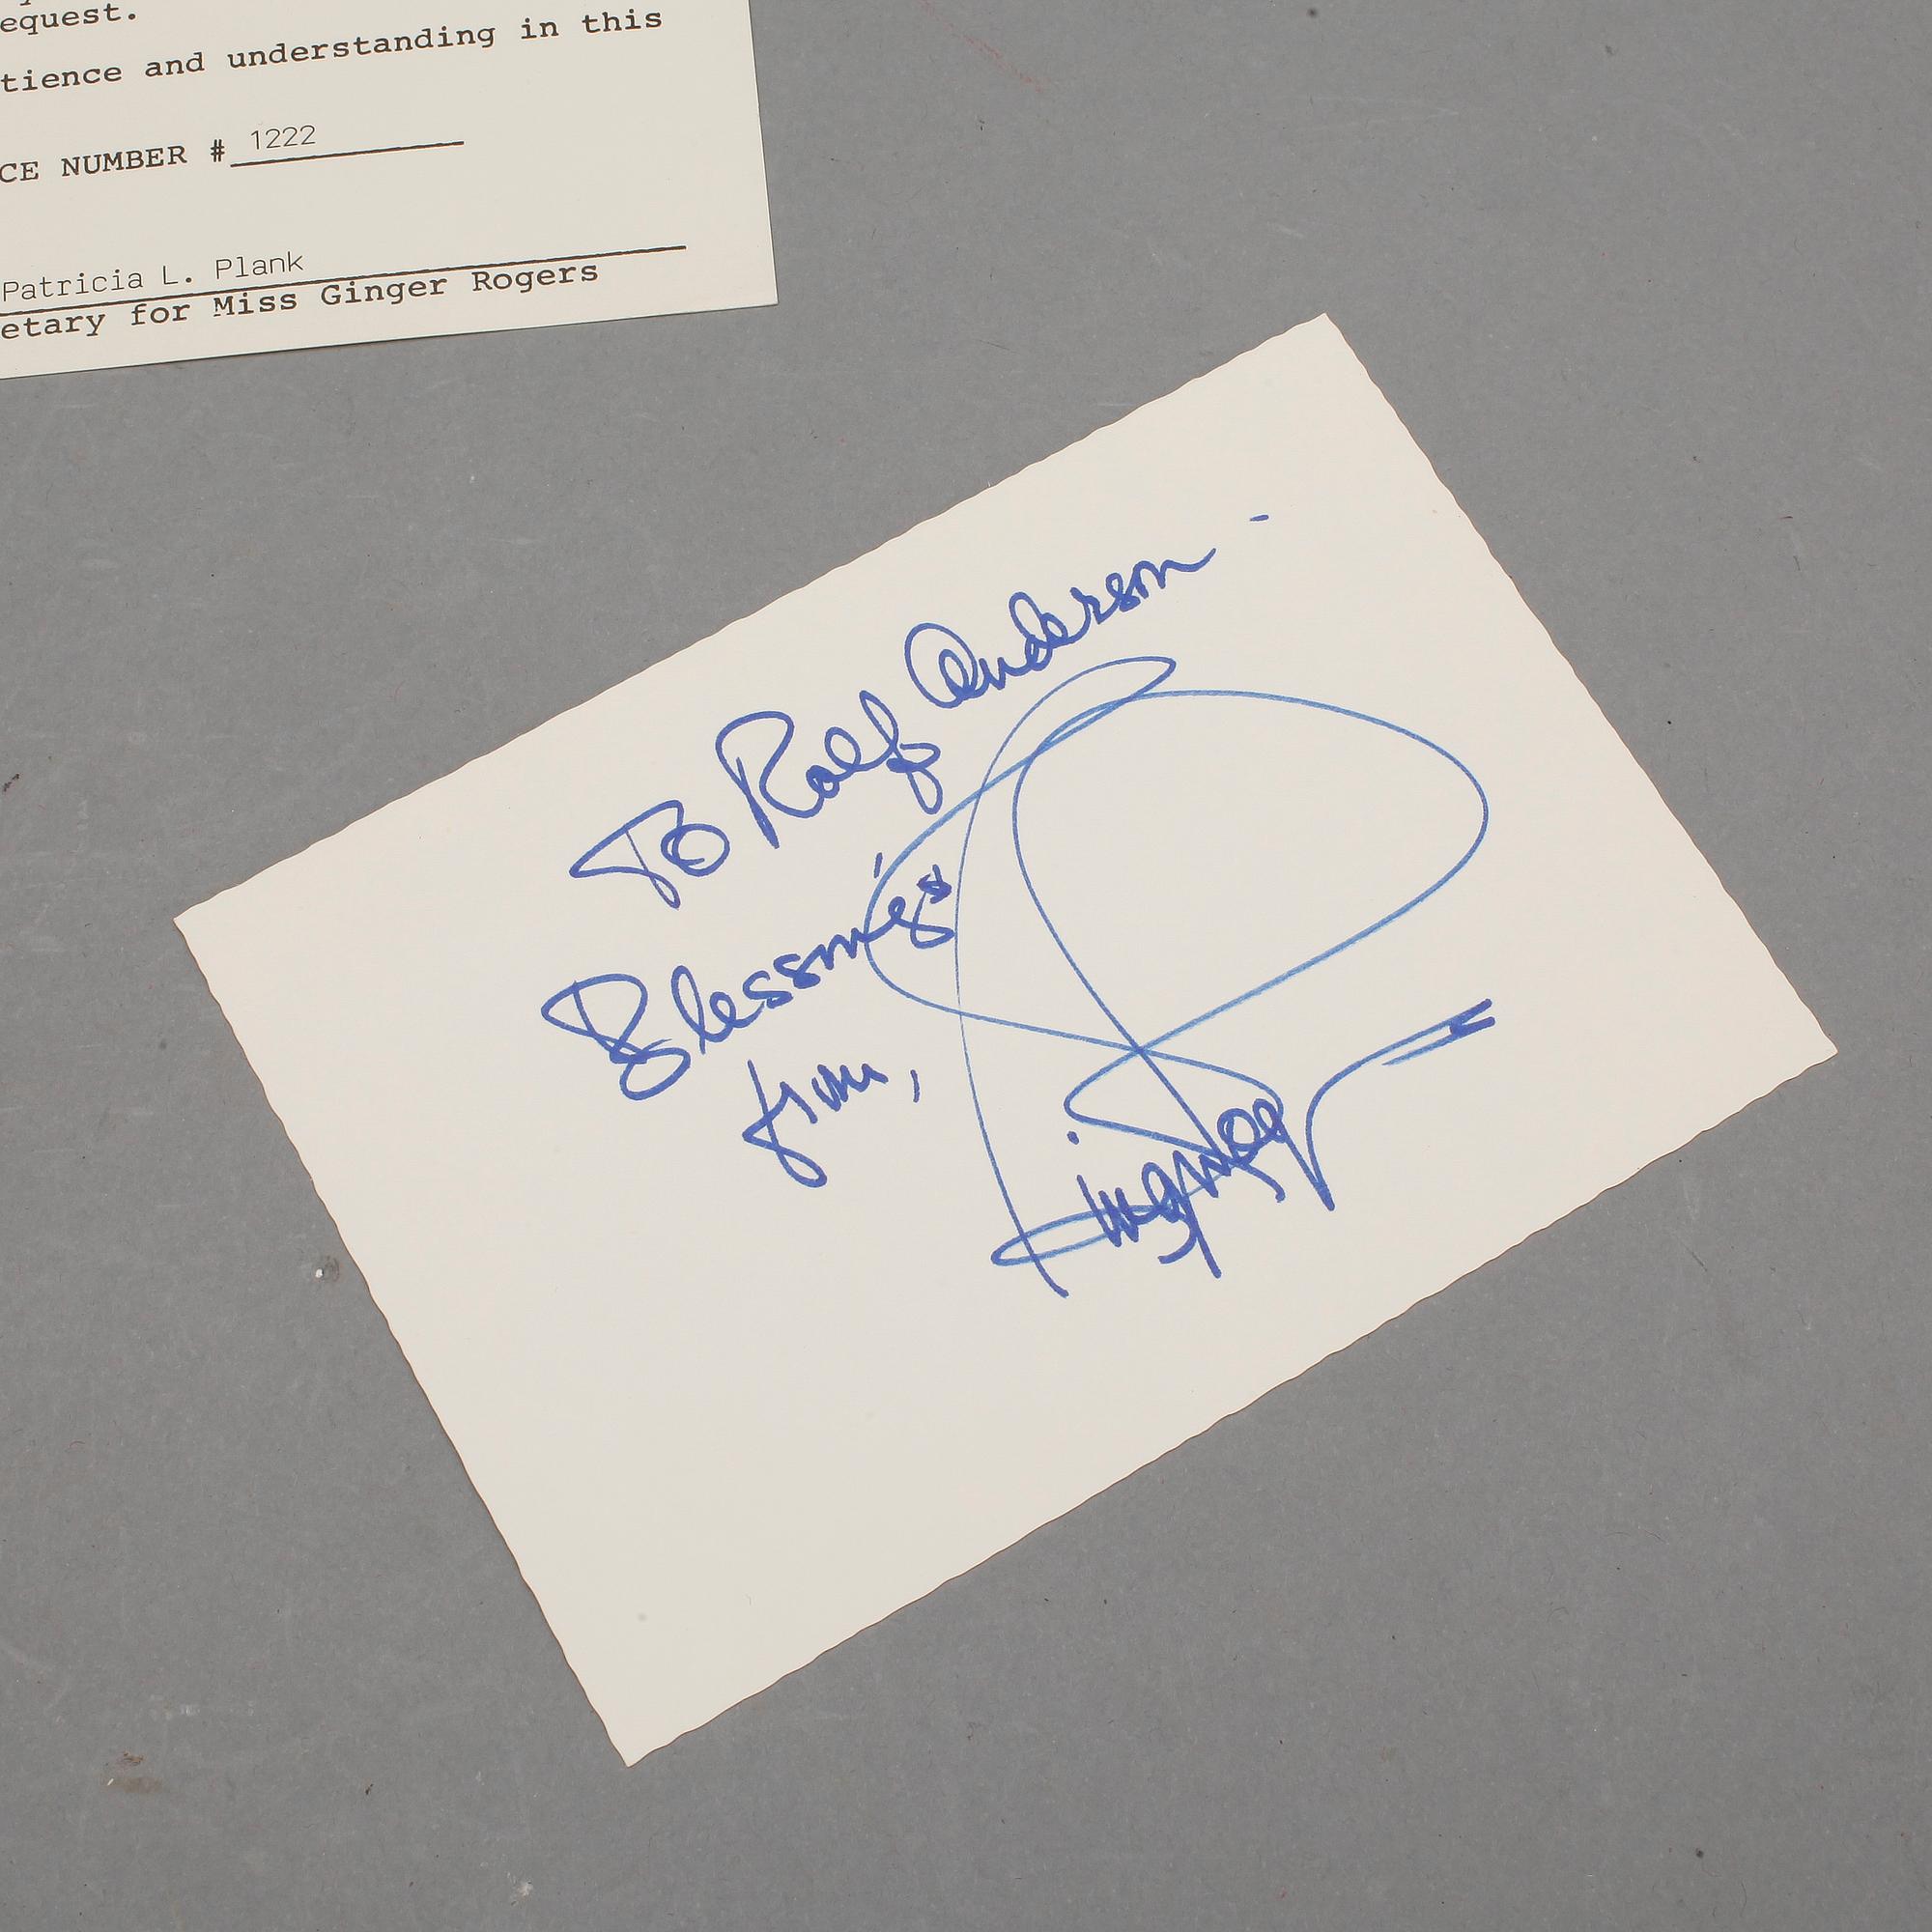 equest.
tience and understanding in this
CE NUMBER # 1222
Patricia L. Plank
etary for Miss Ginger Rogers
To Rolf Anderson -
Blessings
from,
Ginger Rogers